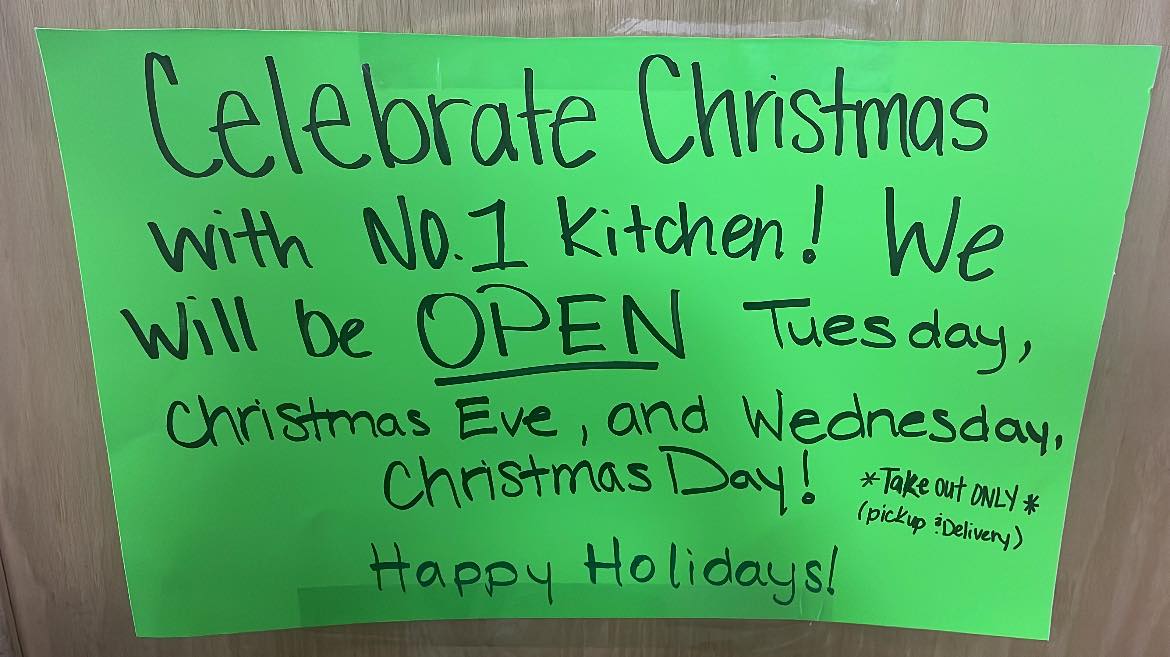 Celebrate Christmas
with No.1 Kitchen! We
will be OPEN Tuesday,
Christmas Eve, and Wednesday,
Christmas Day!
*Take out ONLY*
(pickup & Delivery)
Happy Holidays!